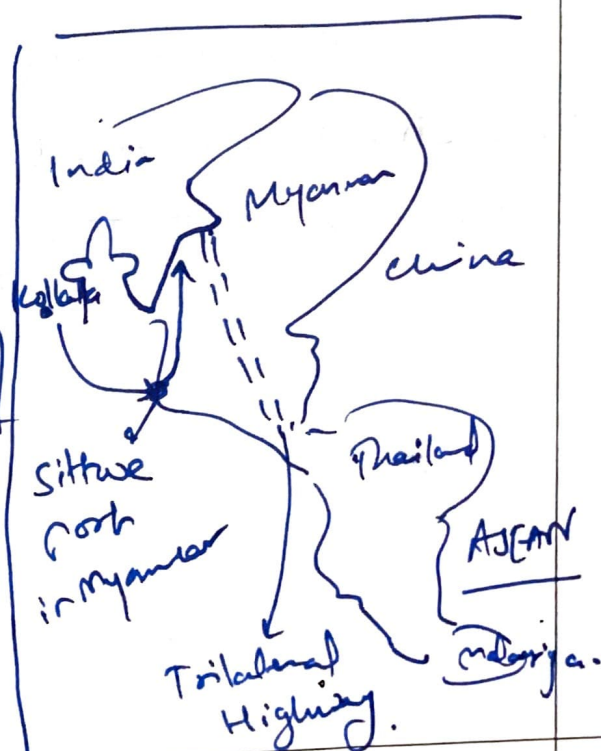 India
Myanmar
China
Kolkata
Sittwe
port
in Myanmar
Thailand
ASEAN
Malaysia.
Trilateral
Highway.